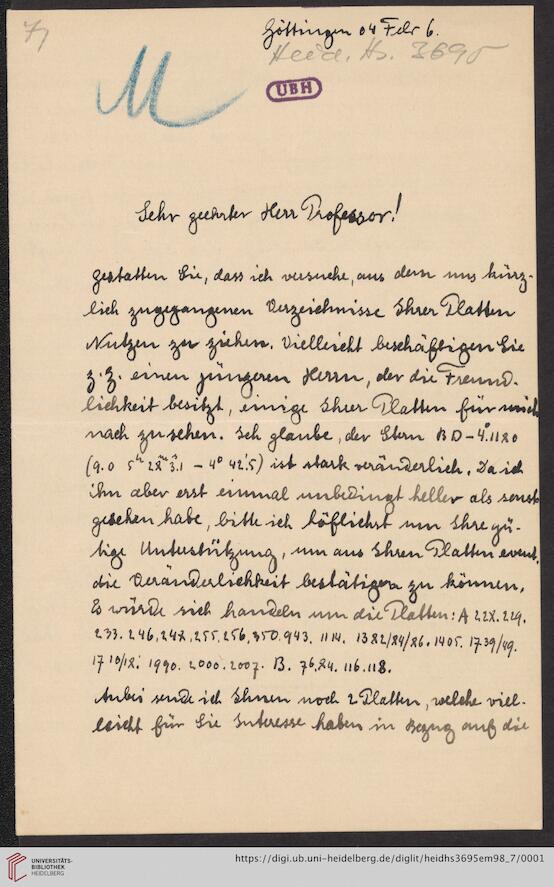 7)
Göttingen 04 Febr 6.
Heid. Hs. 3695
M
UBH
Sehr geehrter Herr Professor!
gestatten Sie, dass ich versuche, aus dem uns kürz-
lich zugegangenen Verzeichnisse Ihrer Platten
Nutzen zu ziehen. Vielleicht beschäftigen Sie
z. Z. einen jüngeren Herrn, der die Freund-
lichkeit besitzt, einige Ihrer Platten für mich
nach zu sehen. Ich glaube, der Stern BD - 4.° 1180
(9.0 5h 28m 3.s1 - 4° 42'.5) ist stark veränderlich. Da ich
ihn aber erst einmal unbedingt heller als sonst
gesehen habe, bitte ich höflichst um Ihre gü-
tige Unterstützung, um aus Ihren Platten event.
die Veränderlichkeit bestätigen zu können.
Es würde sich handeln um die Platten: A 228. 229.
233. 246, 248, 255, 256, 350, 943. 1114. 1382/84/86. 1405. 1739/49.
1710/18. 1990. 2000. 2007. B. 76, 84. 116. 118.
Anbei sende ich Ihnen noch 2 Platten, welche viel-
leicht für Sie Interesse haben in Bezug auf die
UNIVERSITÄTS-
BIBLIOTHEK
HEIDELBERG
https://digi.ub.uni-heidelberg.de/diglit/heidhs3695em98_7/0001